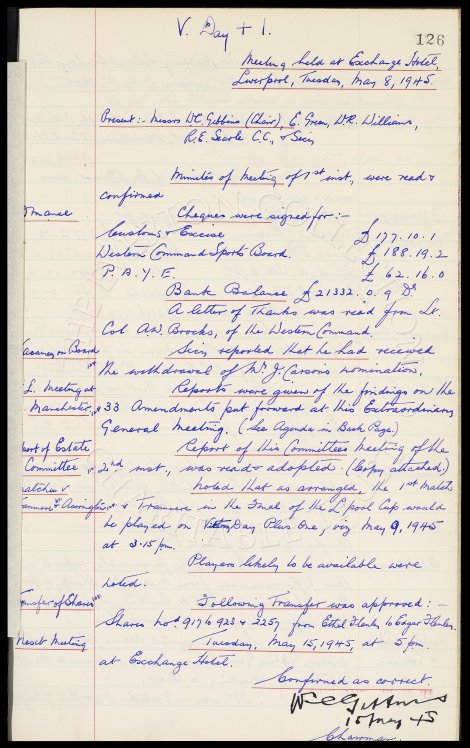 V. Day + 1.
126
Meeting held at Exchange Hotel,
Liverpool, Tuesday, May 8, 1945.
Present:- Messrs W.C. Gibbins (Chair), E. Green, W.R. Williams,
R.E. Searle C.C., & Secy
Minutes of Meeting of 1st inst., were read &
confirmed
Finance
Cheques were signed for:-
Customs & Excise £177.10.1
Western Command Sports Board. £188.19.2
P.A.Y.E. £ 62.16.0
Bank Balance £21332.0.9 Dr
A letter of Thanks was read from Lt.
Col A.W. Brocks, of the Western Command.
Vacancy on Board
Secy reported that he had received
the withdrawal of Mr J. Carsons nomination.
F.L. Meeting at
Reports were given of the findings on the
Manchester
33 Amendments put forward at this Extraordinary
General Meeting. (See Agenda in Back Page.)
Report of Estate
Report of this Committees Meeting of the
Committee
2nd inst., was read & adopted (Copy attached)
Matches v
Noted that as arranged, the 1st Match
Tranmere & Accrington
v Tranmere in the Final of the L'pool Cup would
be played on Day Plus One, viz May 9, 1945
at 3.15 pm.
Players likely to be available were
noted.
Transfer of Shares
Following Transfer was approved:-
Shares Nos 9176 923 & 2257 from Ethel to Edgar
Next Meeting
Tuesday, May 15, 1945, at 5 pm.
at Exchange Hotel.
Confirmed as correct.
W C Gibbins
15 May 45
Chairman.